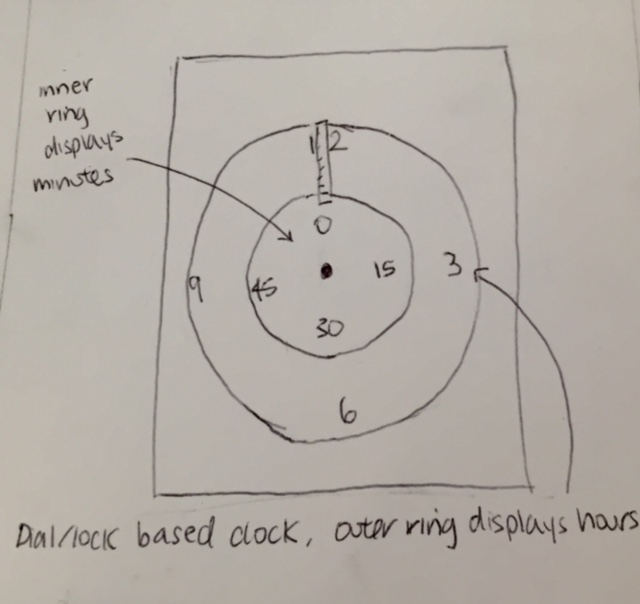 inner
ring
displays
minutes
12
0
45
15
9
3
30
6
Dial/lock based clock, outer ring displays hours